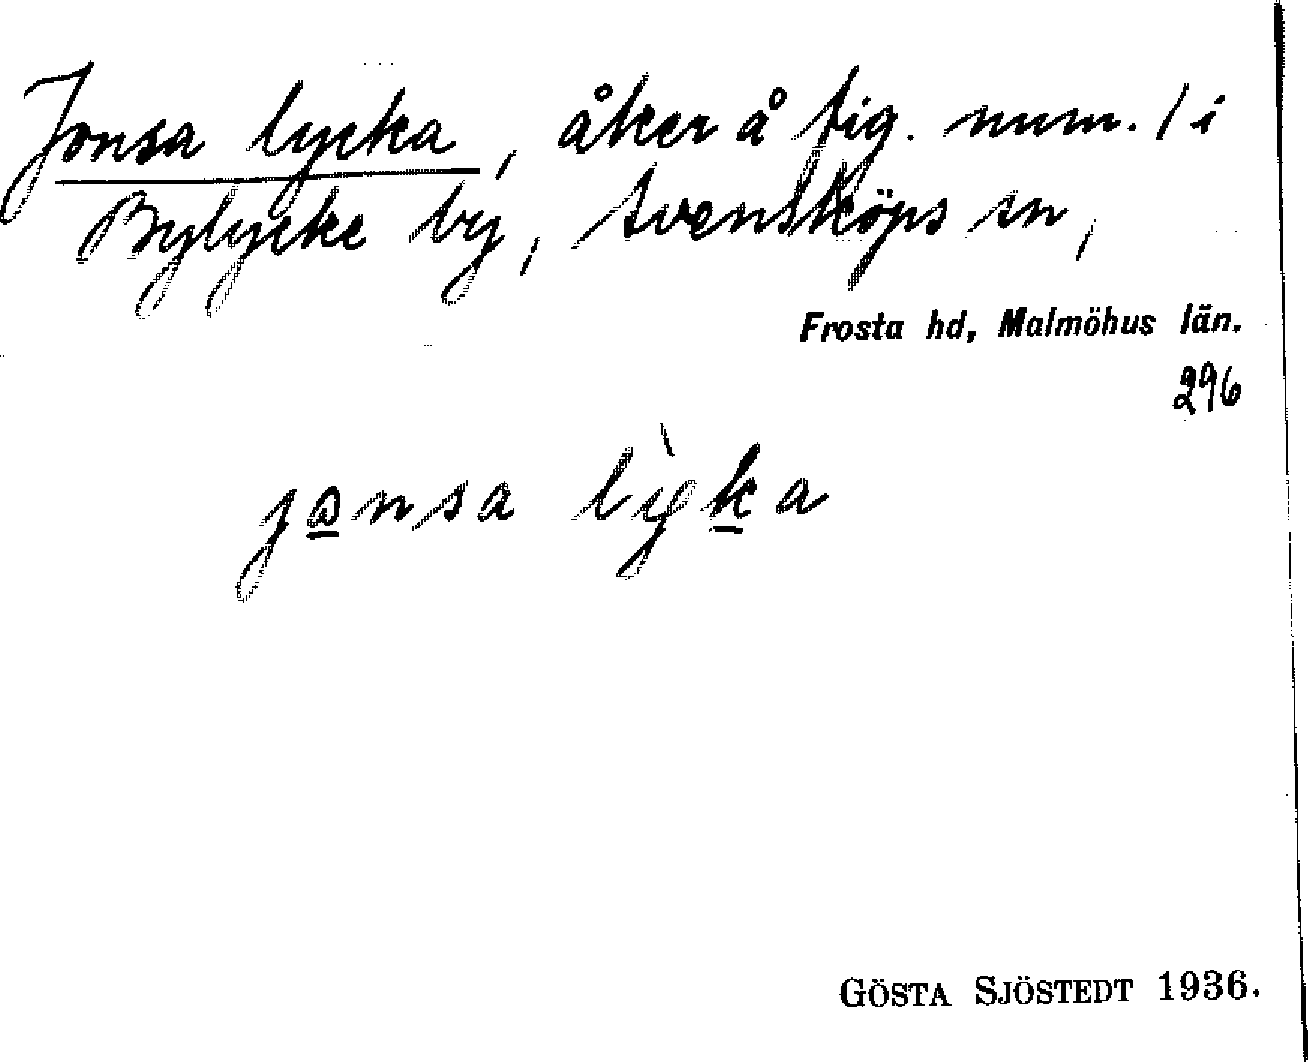 Jonsa lycka, åker å fig. num. 1 i
Bylycke by, Svensköps sn,
Frosta hd, Malmöhus län.
296
jonsa lỳka
GÖSTA SJÖSTEDT 1936.